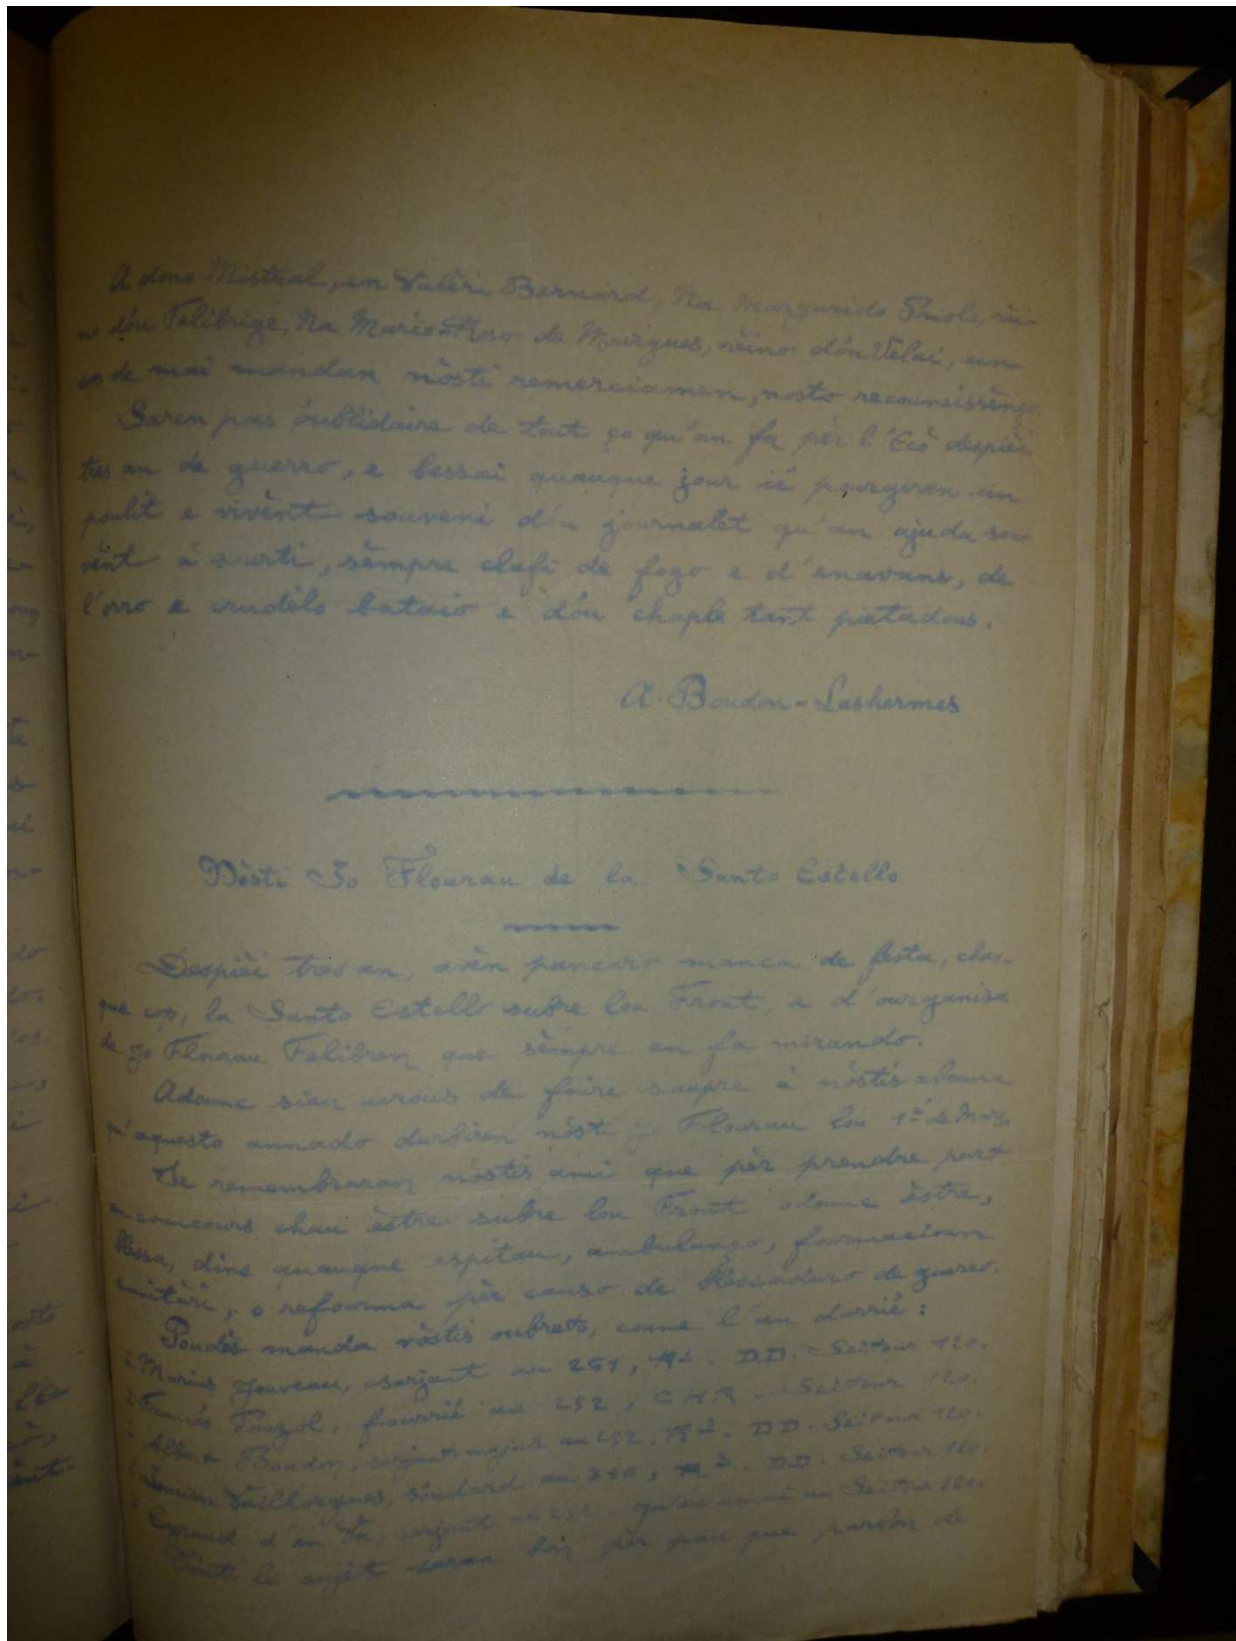 A dono Mistral, en Valèri Bernard, Na Margarido Priolo, rèi-
no dóu Felibrige, Na Marìo-Roso de Mourgues, rèino dóu Velai, un
cop de mai mandan nòsti remerciamen, nosto recouneissènço.
Saren pas óublidaire de tout ço qu'an fa pèr l'Ecò despièi
tres an de guerro, e bessai quauque jour ié pourgiren un
poulit e vivènt souveni dóu journalet qu'an ajuda sou-
vènt à sourti, sèmpre clafi de fogo e d'enavans, de
l'orro e crudèlo bataio e dóu chaple tant pietadous.
A. Boudon-Lashermes
Nòsti Jo Flourau de la Santo Estello
Despièi tres an, avèn pancaro manca de festa, chas-
que cop, la Santo Estello subre lou Front, e d'ourganisa
de jo Flourau Felibren que sèmpre an fa mirando.
Adounc sian urous de faire saupre à nòstis abouna
qu'aquesto annado durbiren nòsti jo Flourau lou 1é de Mars.
Se remembraran nòstis ami que pèr prendre part
au concours chau èstre subre lou Front adounc èstre,
blessa, dins quauque espitau, ambulanço, fourmacioun
sanitàri, o refourma pèr causo de blessaduro de guerro.
Poudès manda vòstis oubreto, coume l'an darrié:
à Marius Jouveau, sarjant au 251, DD. Seitour 120.
à Francés Pouzol, fourrié au 252, CHR. Seitour 120.
à Albert Boudon, sarjant-major au 252, DD. Seitour 120.
à Vailhorgues, soudard au 240, DD. Seitour 120.
à Eyraud d'en sarjant au 252, Seitour 120.
Tóuti li sujèt saran bon, pèr pau que parlon de